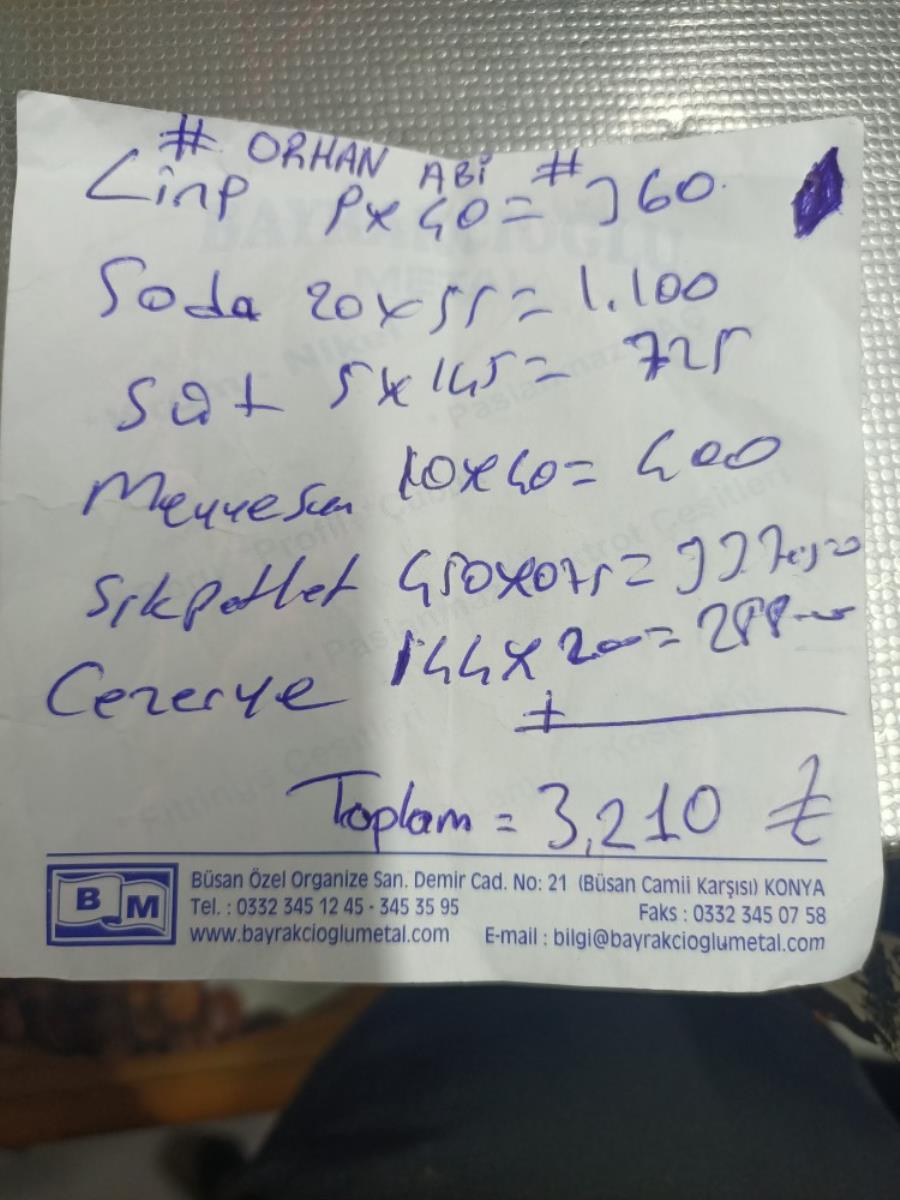 # ORHAN ABİ #
Linp 9x40= 360
Soda 20x55= 1.100
Süt 5x145= 725
Meyvesuu 10x40= 400
450x075= 337,50
Cezerye 144x200= 288,00
+
Toplam = 3,210 ₺
BAYRAKÇIOĞLU
METAL
B M
Büsan Özel Organize San. Demir Cad. No: 21 (Büsan Camii Karşısı) KONYA
Tel. : 0332 345 12 45 - 345 35 95 Faks : 0332 345 07 58
www.bayrakcioglumetal.com E-mail : bilgi@bayrakcioglumetal.com